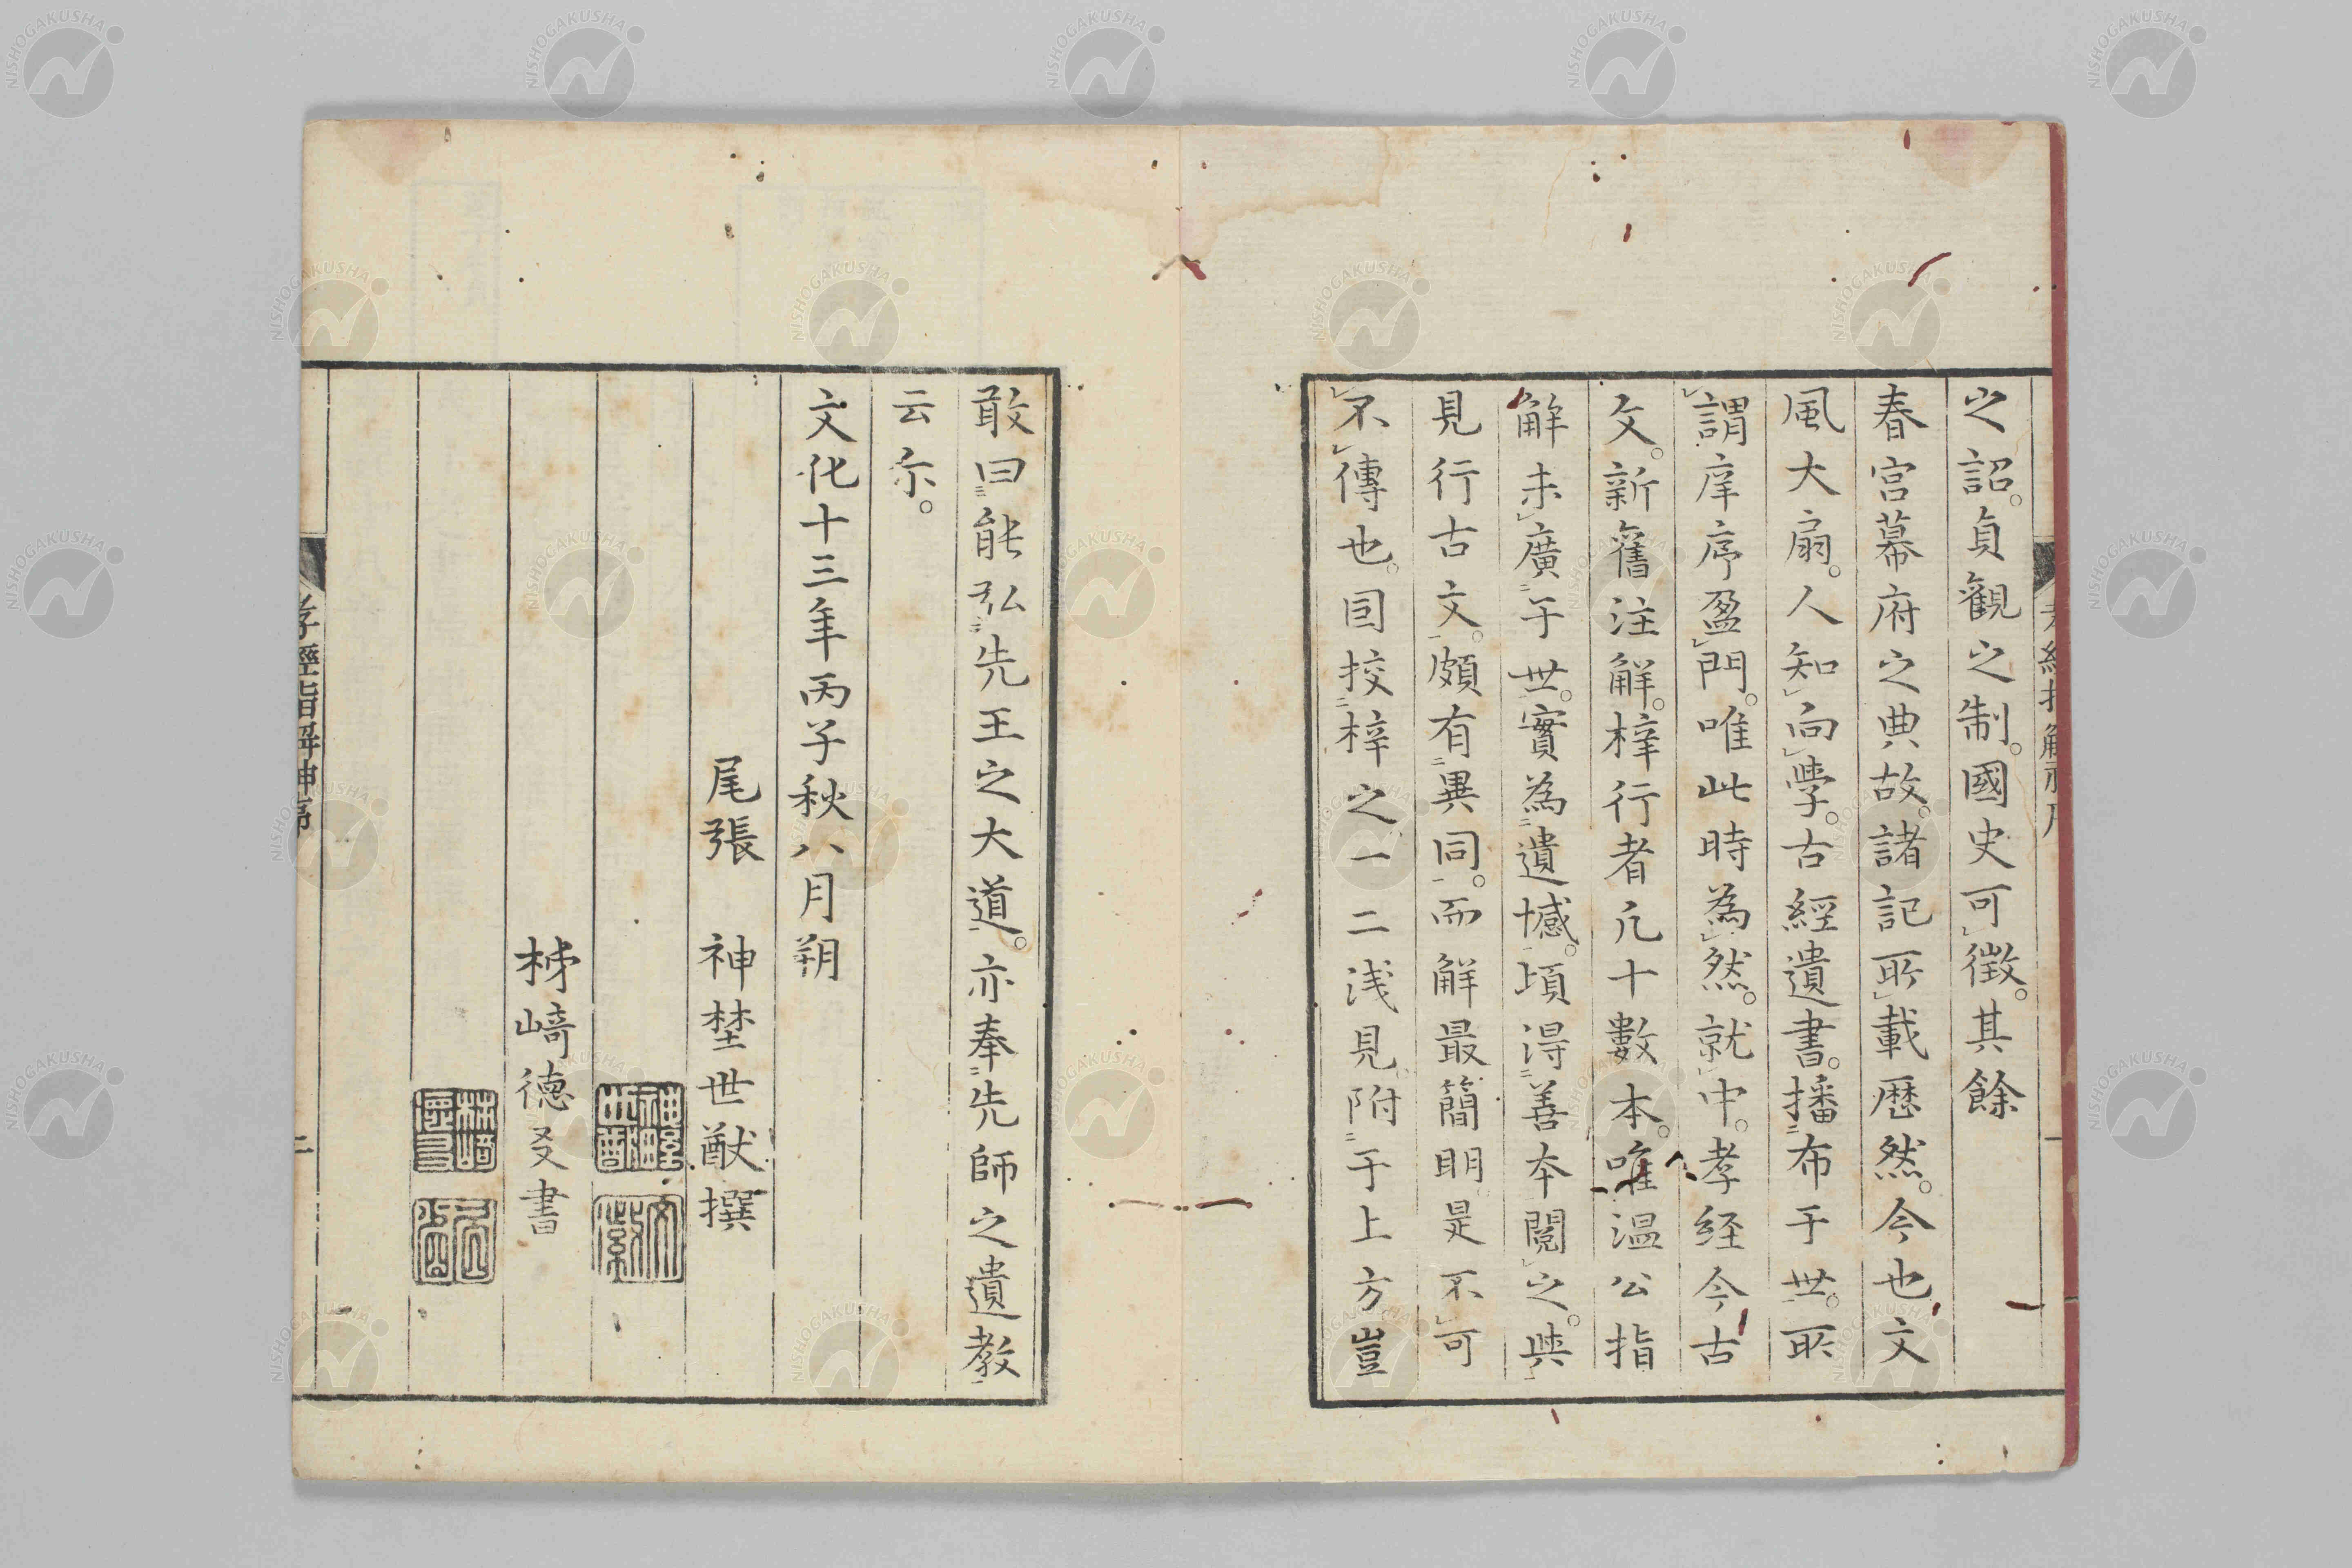 之詔。貞觀之制。國史可徵。其餘
春宮幕府之典故。諸記所載歷然。今也文
風大扇。人知向學。古經遺書。播布于世。所
謂庠序盈門。唯此時為然。就中。孝経今古
文。新舊注解。梓行者凡十數本。唯温公指
解未廣于世。實為遺憾。頃得善本閱之。與
見行古文。頗有異同。而解最簡明。是不可
不傳也。因挍梓之。一二浅見。附于上方。豈
敢曰能弘先王之大道。亦奉先師之遺教
云尓。
文化十三年丙子秋八月朔
尾張 神埜世猷撰
柹﨑德叟書
孝經指解神序
二
NISHOGAKUSHA